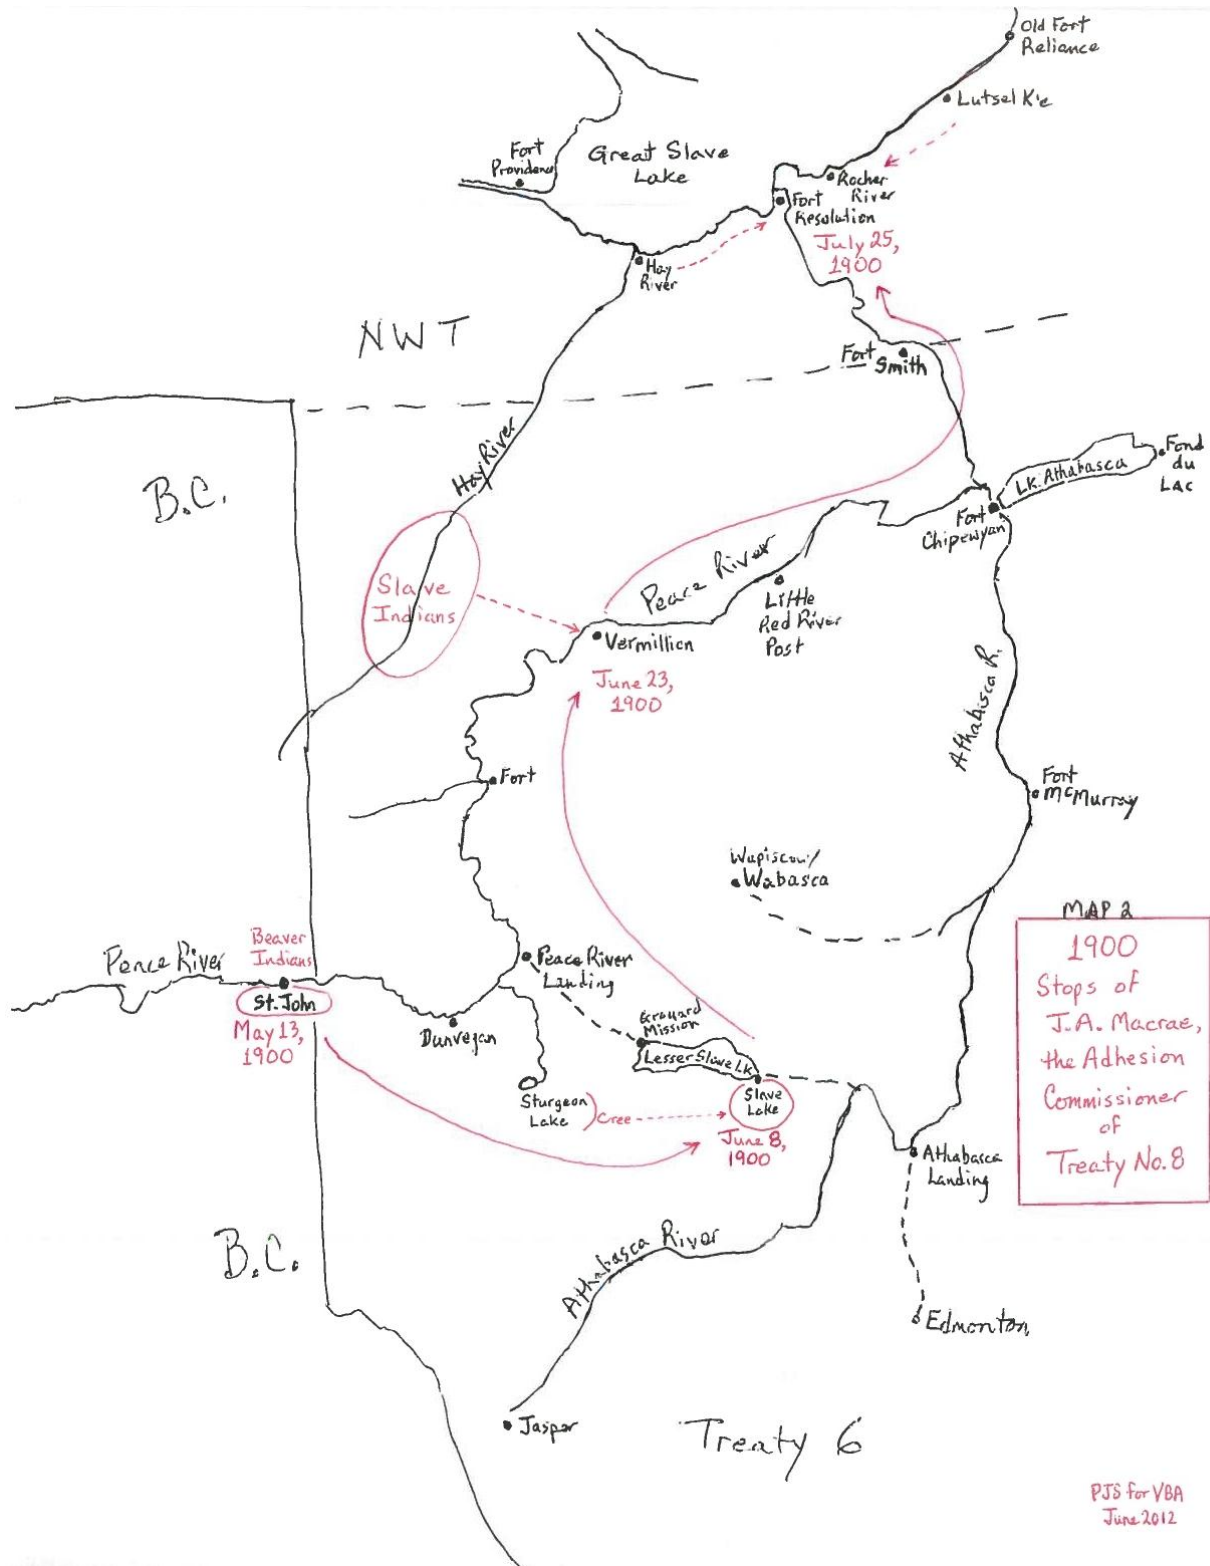 Old Fort
Reliance
Lutsel K'e
Fort
Providence
Great Slave
Lake
Rocher
River
Fort
Resolution
July 25,
1900
Hay
River
NWT
Fort
Smith
Hay River
B.C.
Lk. Athabasca
Fond
du
Lac
Fort
Chipewyan
Slave
Indians
Peace River
Little
Red River
Post
Vermillion
June 23,
1900
Athabisca R.
Fort
Fort
McMurray
Wapiscow/
Wabasca
MAP 2
1900
Stops of
J.A. Macrae,
the Adhesion
Commissioner
of
Treaty No. 8
Peace River
Beaver
Indians
St. John
May 13,
1900
Peace River
Landing
Dunvegan
Grouard
Mission
Lesser Slave Lk
Slave
Lake
June 8,
1900
Sturgeon
Lake
Cree
Athabasca
Landing
B.C.
Athabasca River
Edmonton
Jasper
Treaty 6
PJS for VBA
June 2012